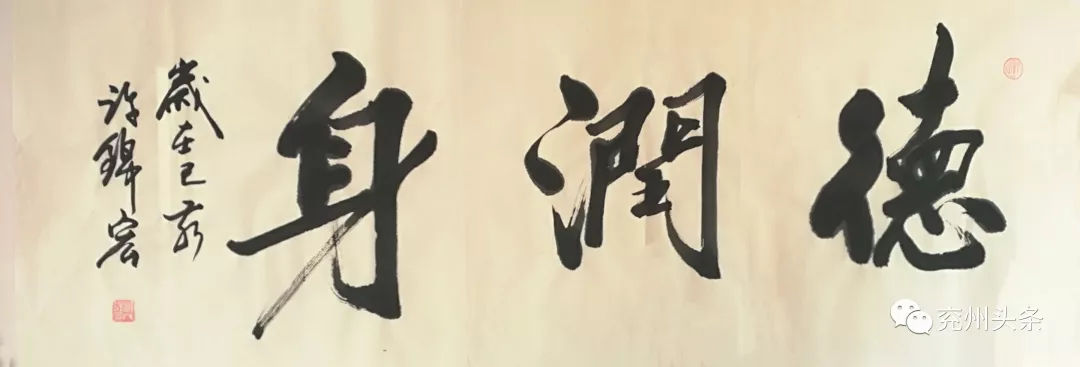 德潤身
歲在己亥
許錦宏
兖州头条